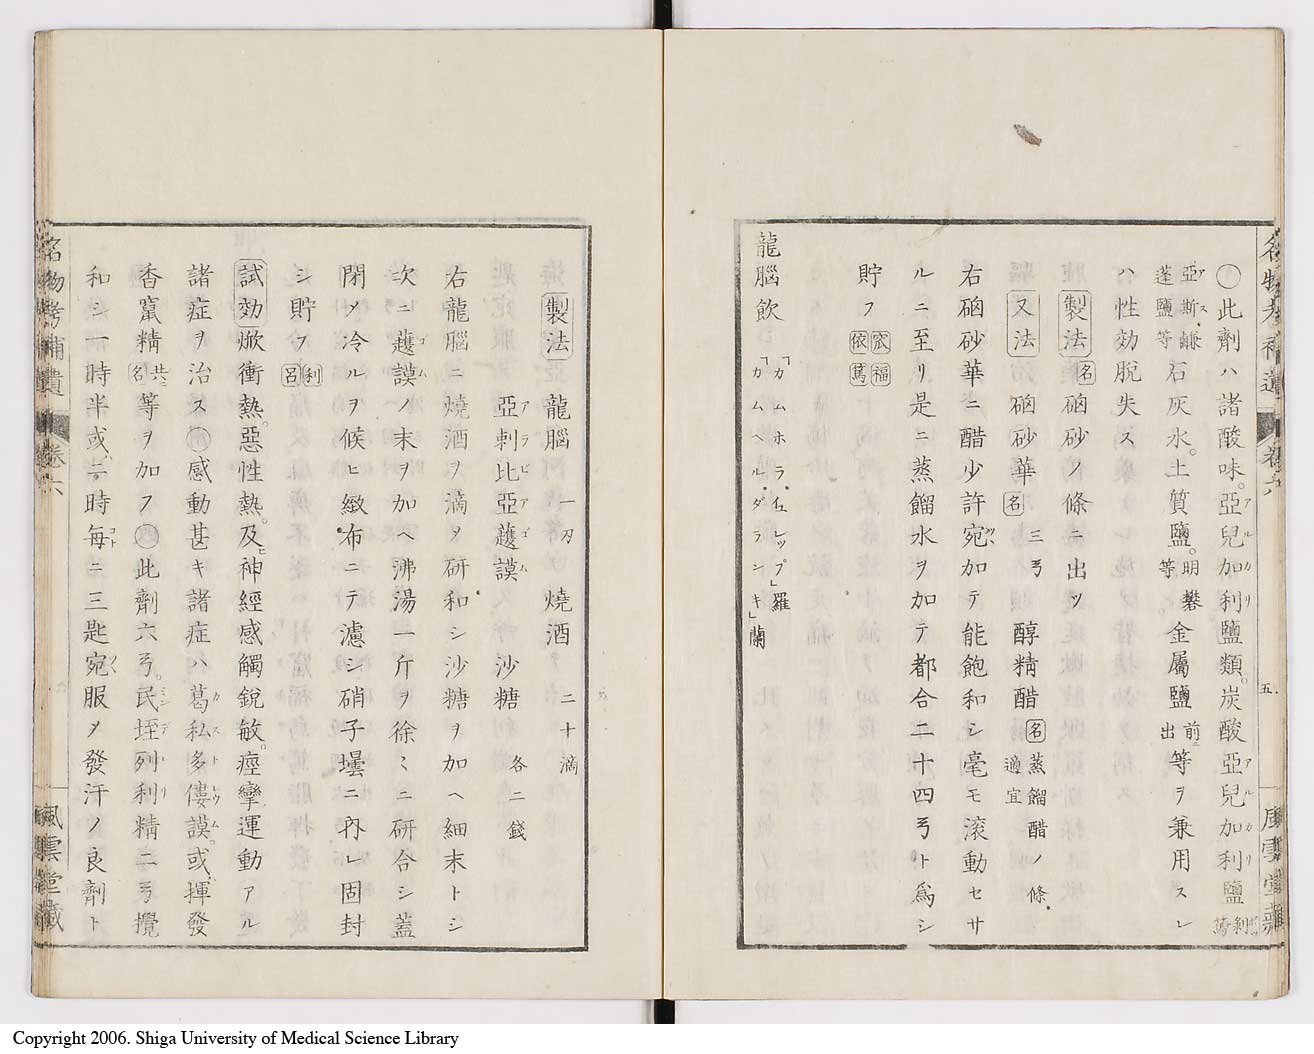 名物考補遺 卷六 五 風雲堂藏
○此劑ハ諸酸味。亞兒加利鹽類。炭酸亞兒加利鹽
亞斯鹻蓬鹽等石灰水。土質鹽。明礬等金屬鹽前ニ出等ヲ兼用スレ
ハ性効脱失ス
製法 名 硇砂ノ條ニ出ツ
又法 硇砂華 名 三弓 醇精醋 名 蒸餾醋ノ條 適宜
右硇砂華ニ醋少許宛加テ能飽和シ毫モ滚動セサ
ルニ至リ是ニ蒸餾水ヲ加テ都合二十四弓ト爲シ
貯フ 依篤 福
龍腦飲 「カムホラ、イユレップ」羅 「カムヘル、ダランキ」蘭
製法 龍腦 一刃 燒酒 二十滴
亞剌比亞護謨 沙糖 各二錢
右龍腦ニ燒酒ヲ滴ヲ研和シ沙糖ヲ加ヘ細末トシ
次ニ護謨ノ末ヲ加ヘ沸湯一斤ヲ徐ミニ研合シ蓋
閉メ冷ルヲ候ヒ緻布ニテ濾シ硝子壜ニ內レ固封
シ貯フ 呂 利
試効 焮衝熱。惡性熱。及神經感觸銳敏。痙攣運動アル
諸症ヲ治ス 感動甚キ諸症ハ葛私多僂謨。或揮發
香竄精 共ニ名 等ヲ加フ 此劑六弓。民垤列利精二弓攪
和シ一時半或二時每ニ三匙宛服メ發汗ノ良劑ト
名物考補遺 卷六 風雲堂藏
Copyright 2006. Shiga University of Medical Science Library